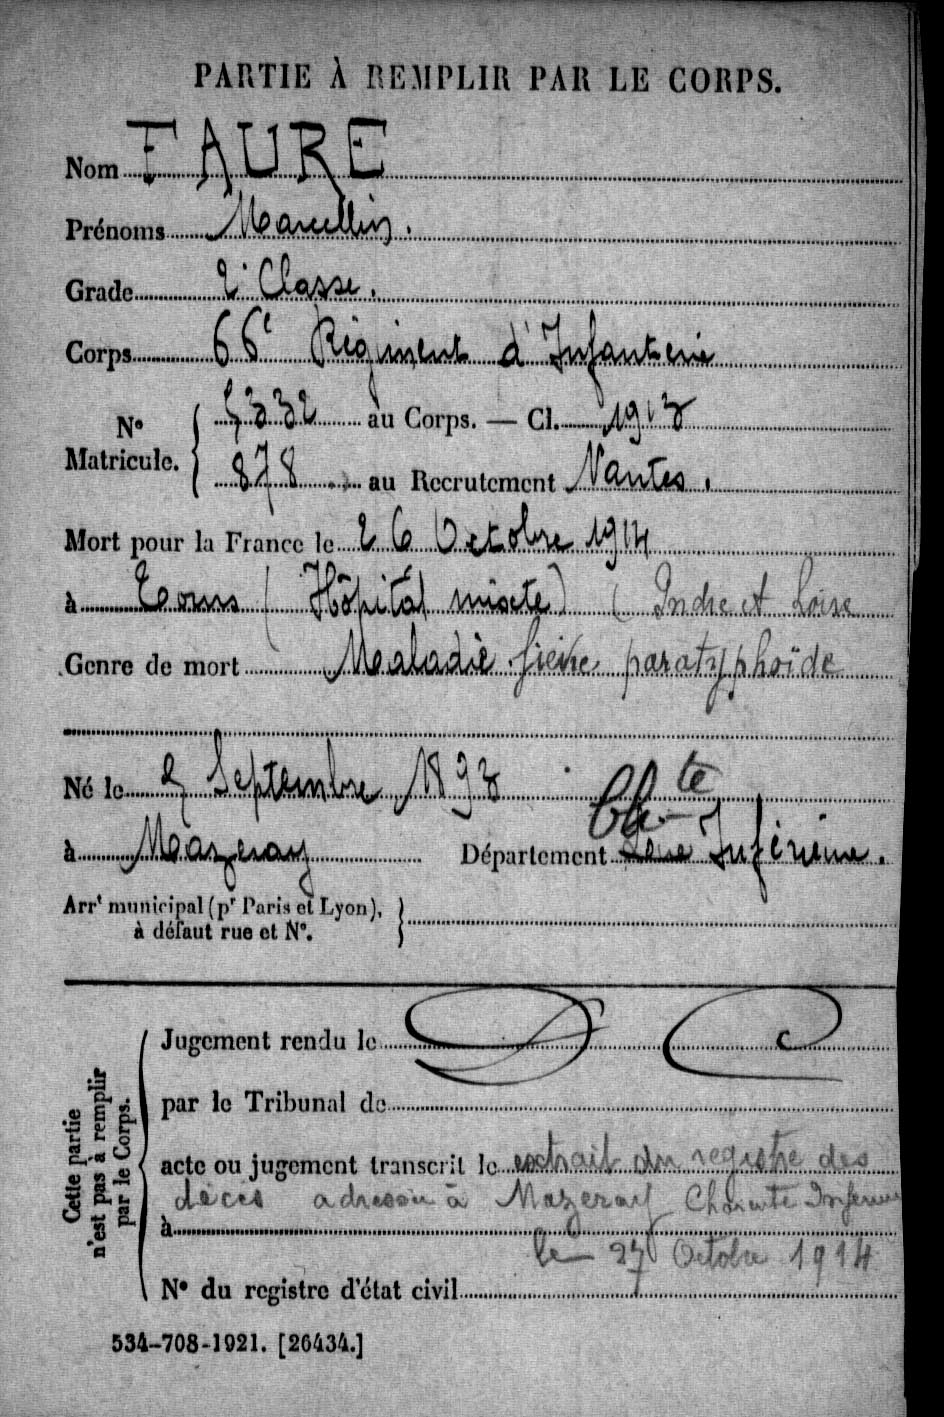 PARTIE À REMPLIR PAR LE CORPS.
Nom FAURE
Prénoms Marcellin.
Grade 2e Classe.
Corps 66e Régiment d'Infanterie
No Matricule. { 5332 au Corps. — Cl. 1913
878 au Recrutement Nantes.
Mort pour la France le 26 Octobre 1914
à Tours (Hôpital mixte) (Indre et Loire
Genre de mort Maladie fièvre paratyphoïde
Né le Septembre 1893
Chte
à Mazeray Département Inférieure.
Arrt municipal (pr Paris et Lyon),
à défaut rue et No.
Cette partie n'est pas à remplir par le Corps.
Jugement rendu le
par le Tribunal de
acte ou jugement transcrit le extrait du registre des
décès adressé à Mazeray Charente Inférieure
à
le 27 Octobre 1914
No du registre d'état civil
534-708-1921. [26434.]